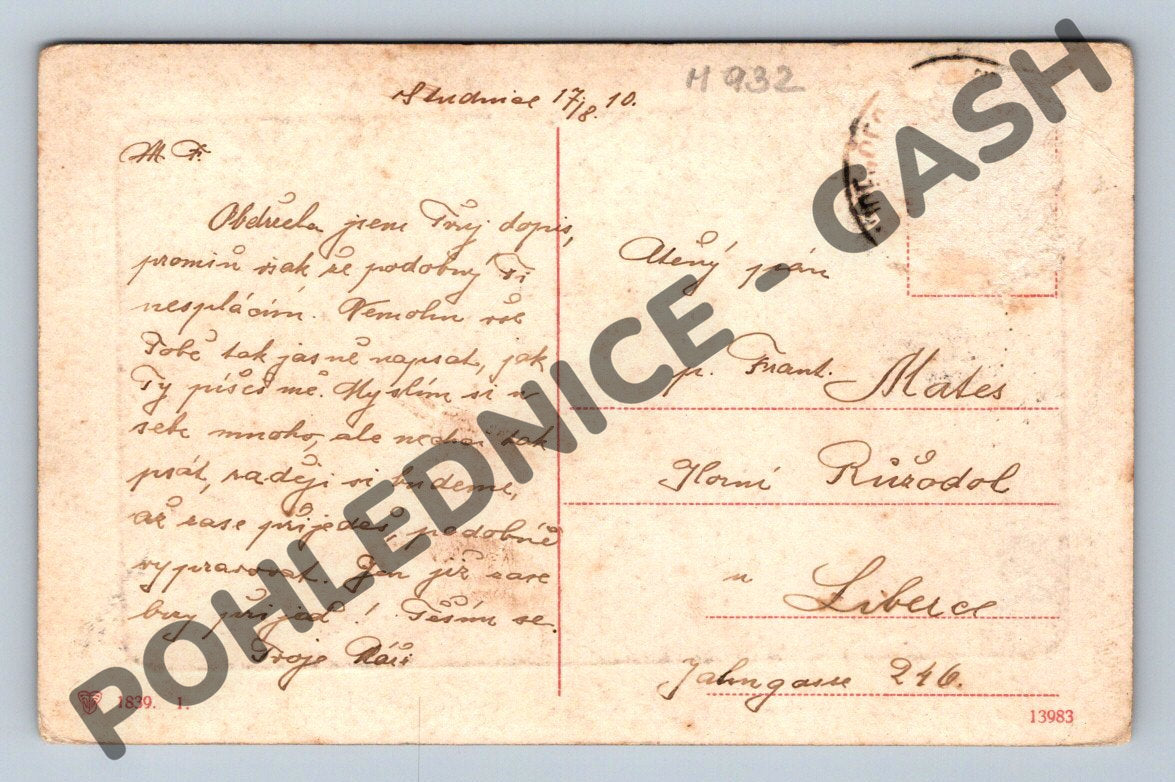 Studnice 17/8. 10.
M 932
M. F.
Obdržela jsem Tvůj dopis,
promiň však že podobný Ti
nesplácím. Nemohu vše
Tobě tak jasně napsat, jak
Ty píšeš mě. Myslím si v
sebe mnoho, ale nechci tak
psát, raději si budeme,
až zase přijedeš, podobně
vypravovat. Jen již zase
brzy přijeď! Těším se.
Tvoje
Ctěný pán
p. Frant. Mates
Horní Růžodol
u Liberce
Jahngasse 246.
1839. 1.
13983
POHLEDNICE - GASH